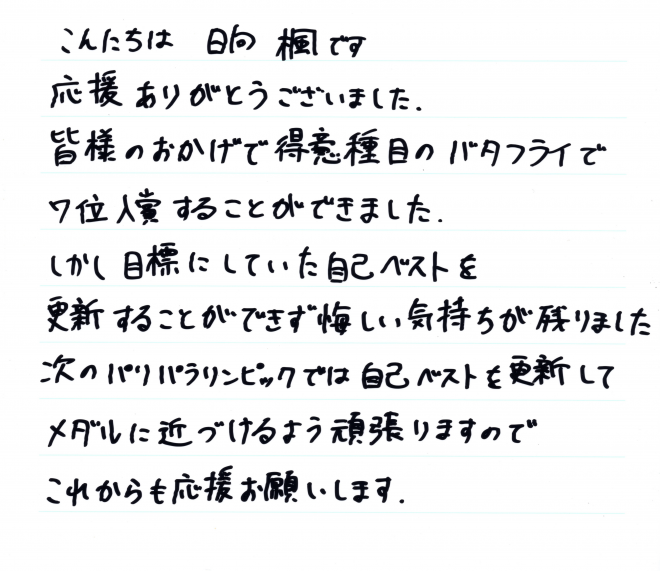 こんにちは 日向 楓です
応援ありがとうございました.
皆様のおかげで得意種目のバタフライで
7位入賞することができました.
しかし目標にしていた自己ベストを
更新することができず悔しい気持ちが残りました
次のパリパラリンピックでは自己ベストを更新して
メダルに近づけるよう頑張りますので
これからも応援お願いします.